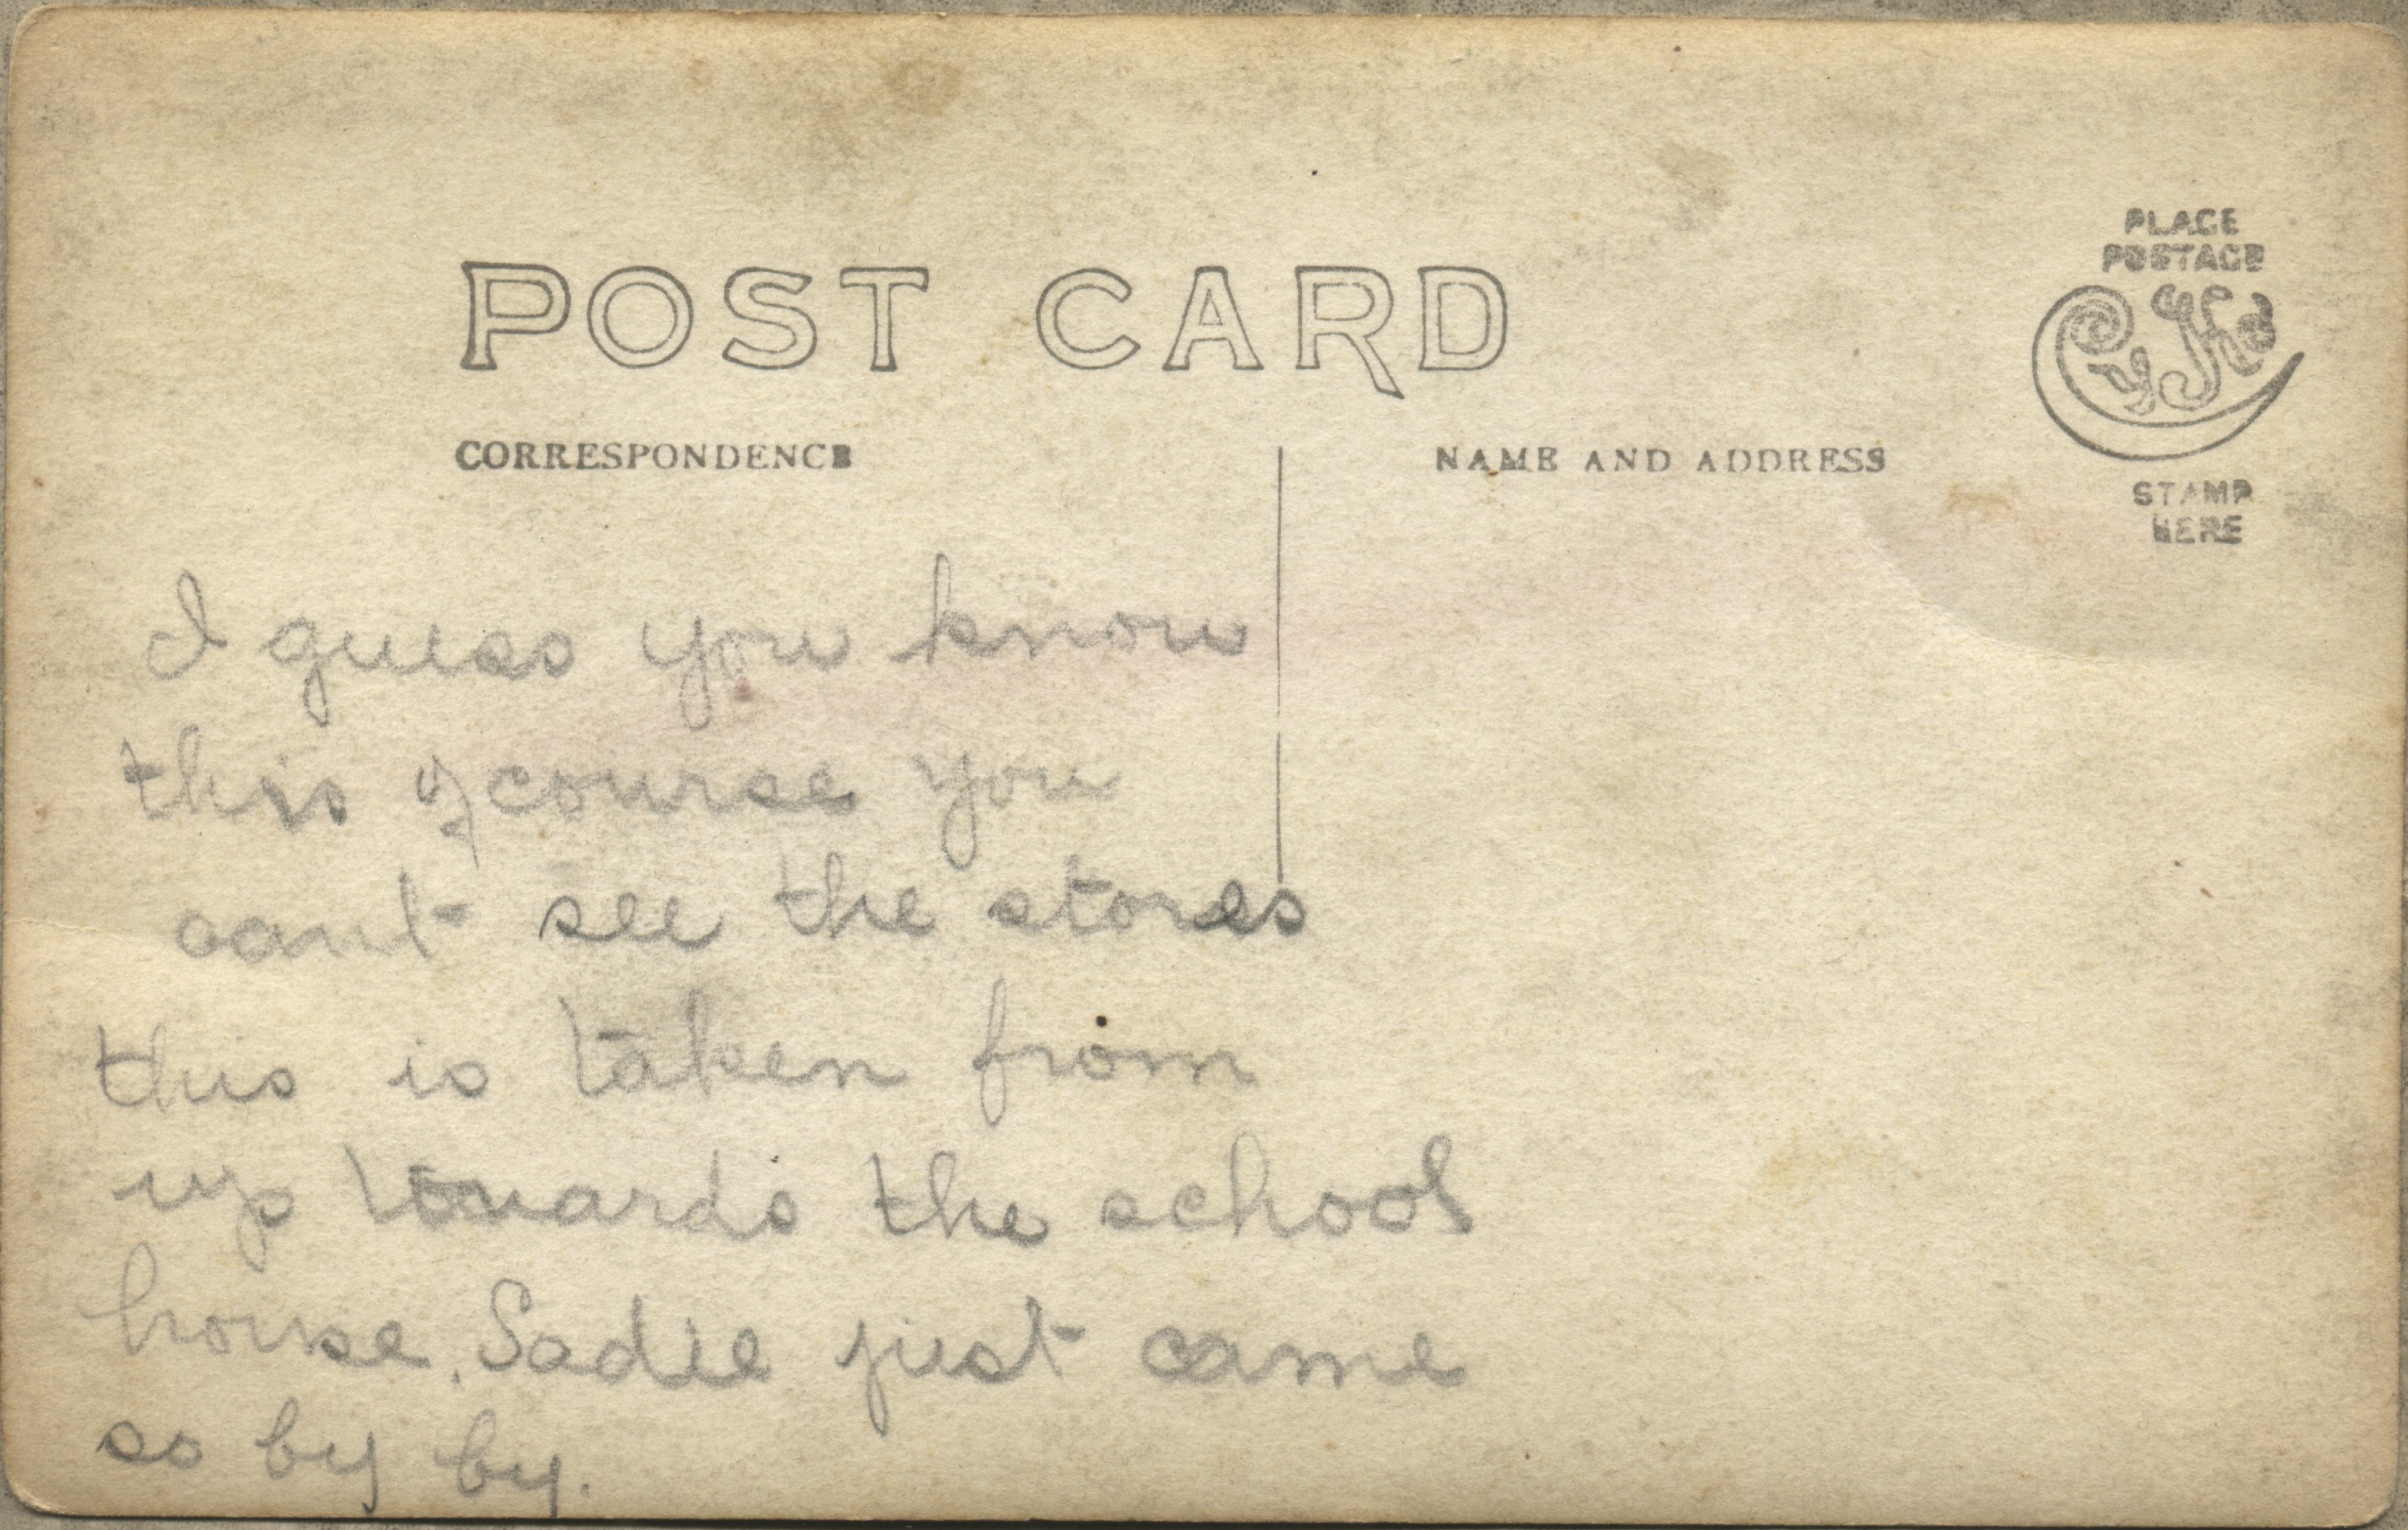 POST CARD
PLACE
POSTAGE
STAMP
HERE
CORRESPONDENCE
NAME AND ADDRESS
I guess you know
this of course you
cant see the stores
this is taken from
up towards the school
house. Sadie just came
so by by.